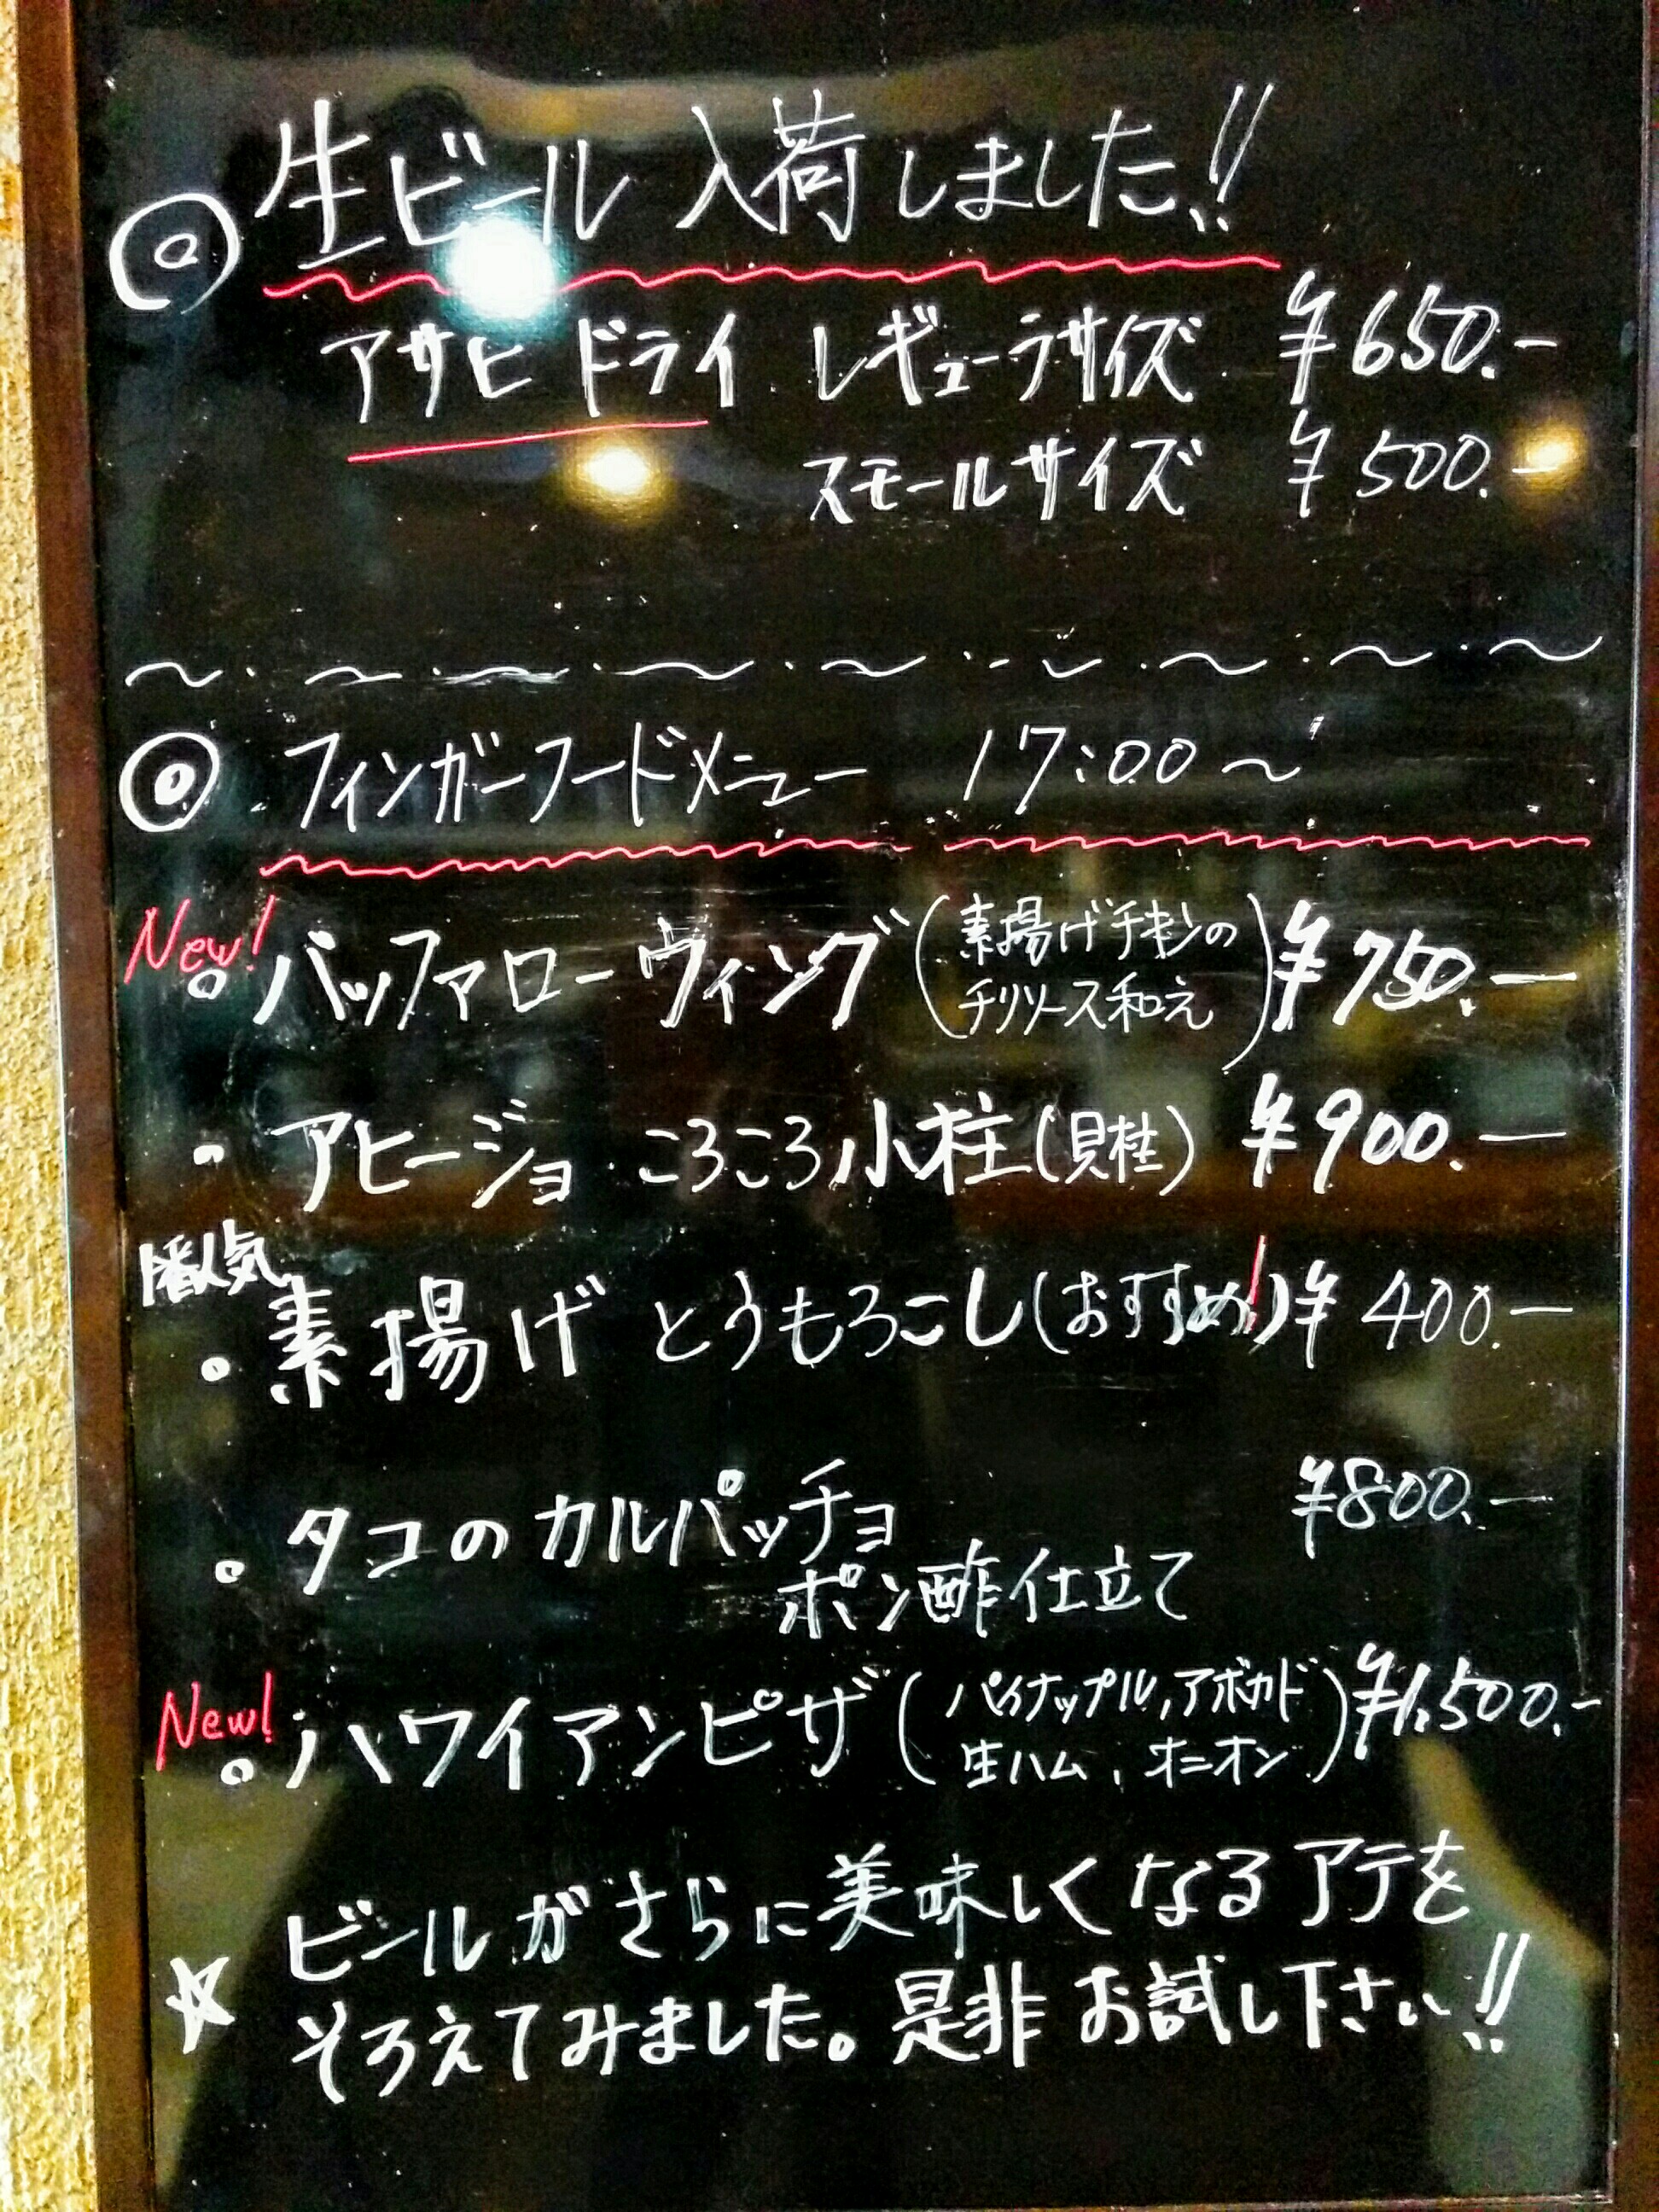 ◎ 生ビール 入荷しました!!
アサヒ ドライ レギューラサイズ ¥650.-
スモールサイズ ¥500.-
〜・〜・〜・〜・〜・-〜・〜・〜・〜
◎ フィンガーフードメニュー 17:00〜
New!
・バッファローウィング(素揚げチキンの
チリソース和え) ¥750.-
・アヒージョ ころころ小柱(貝柱) ¥900.-
1番人気
・素揚げ とうもろこし(おすすめ!) ¥400.-
・タコのカルパッチョ ¥800.-
ポン酢仕立て
New!
・ハワイアンピザ(パイナップル,アボカド
生ハム,オニオン) ¥1,500.-
☆ ビールがさらに美味しくなるアテを
そろえてみました。是非お試し下さい!!